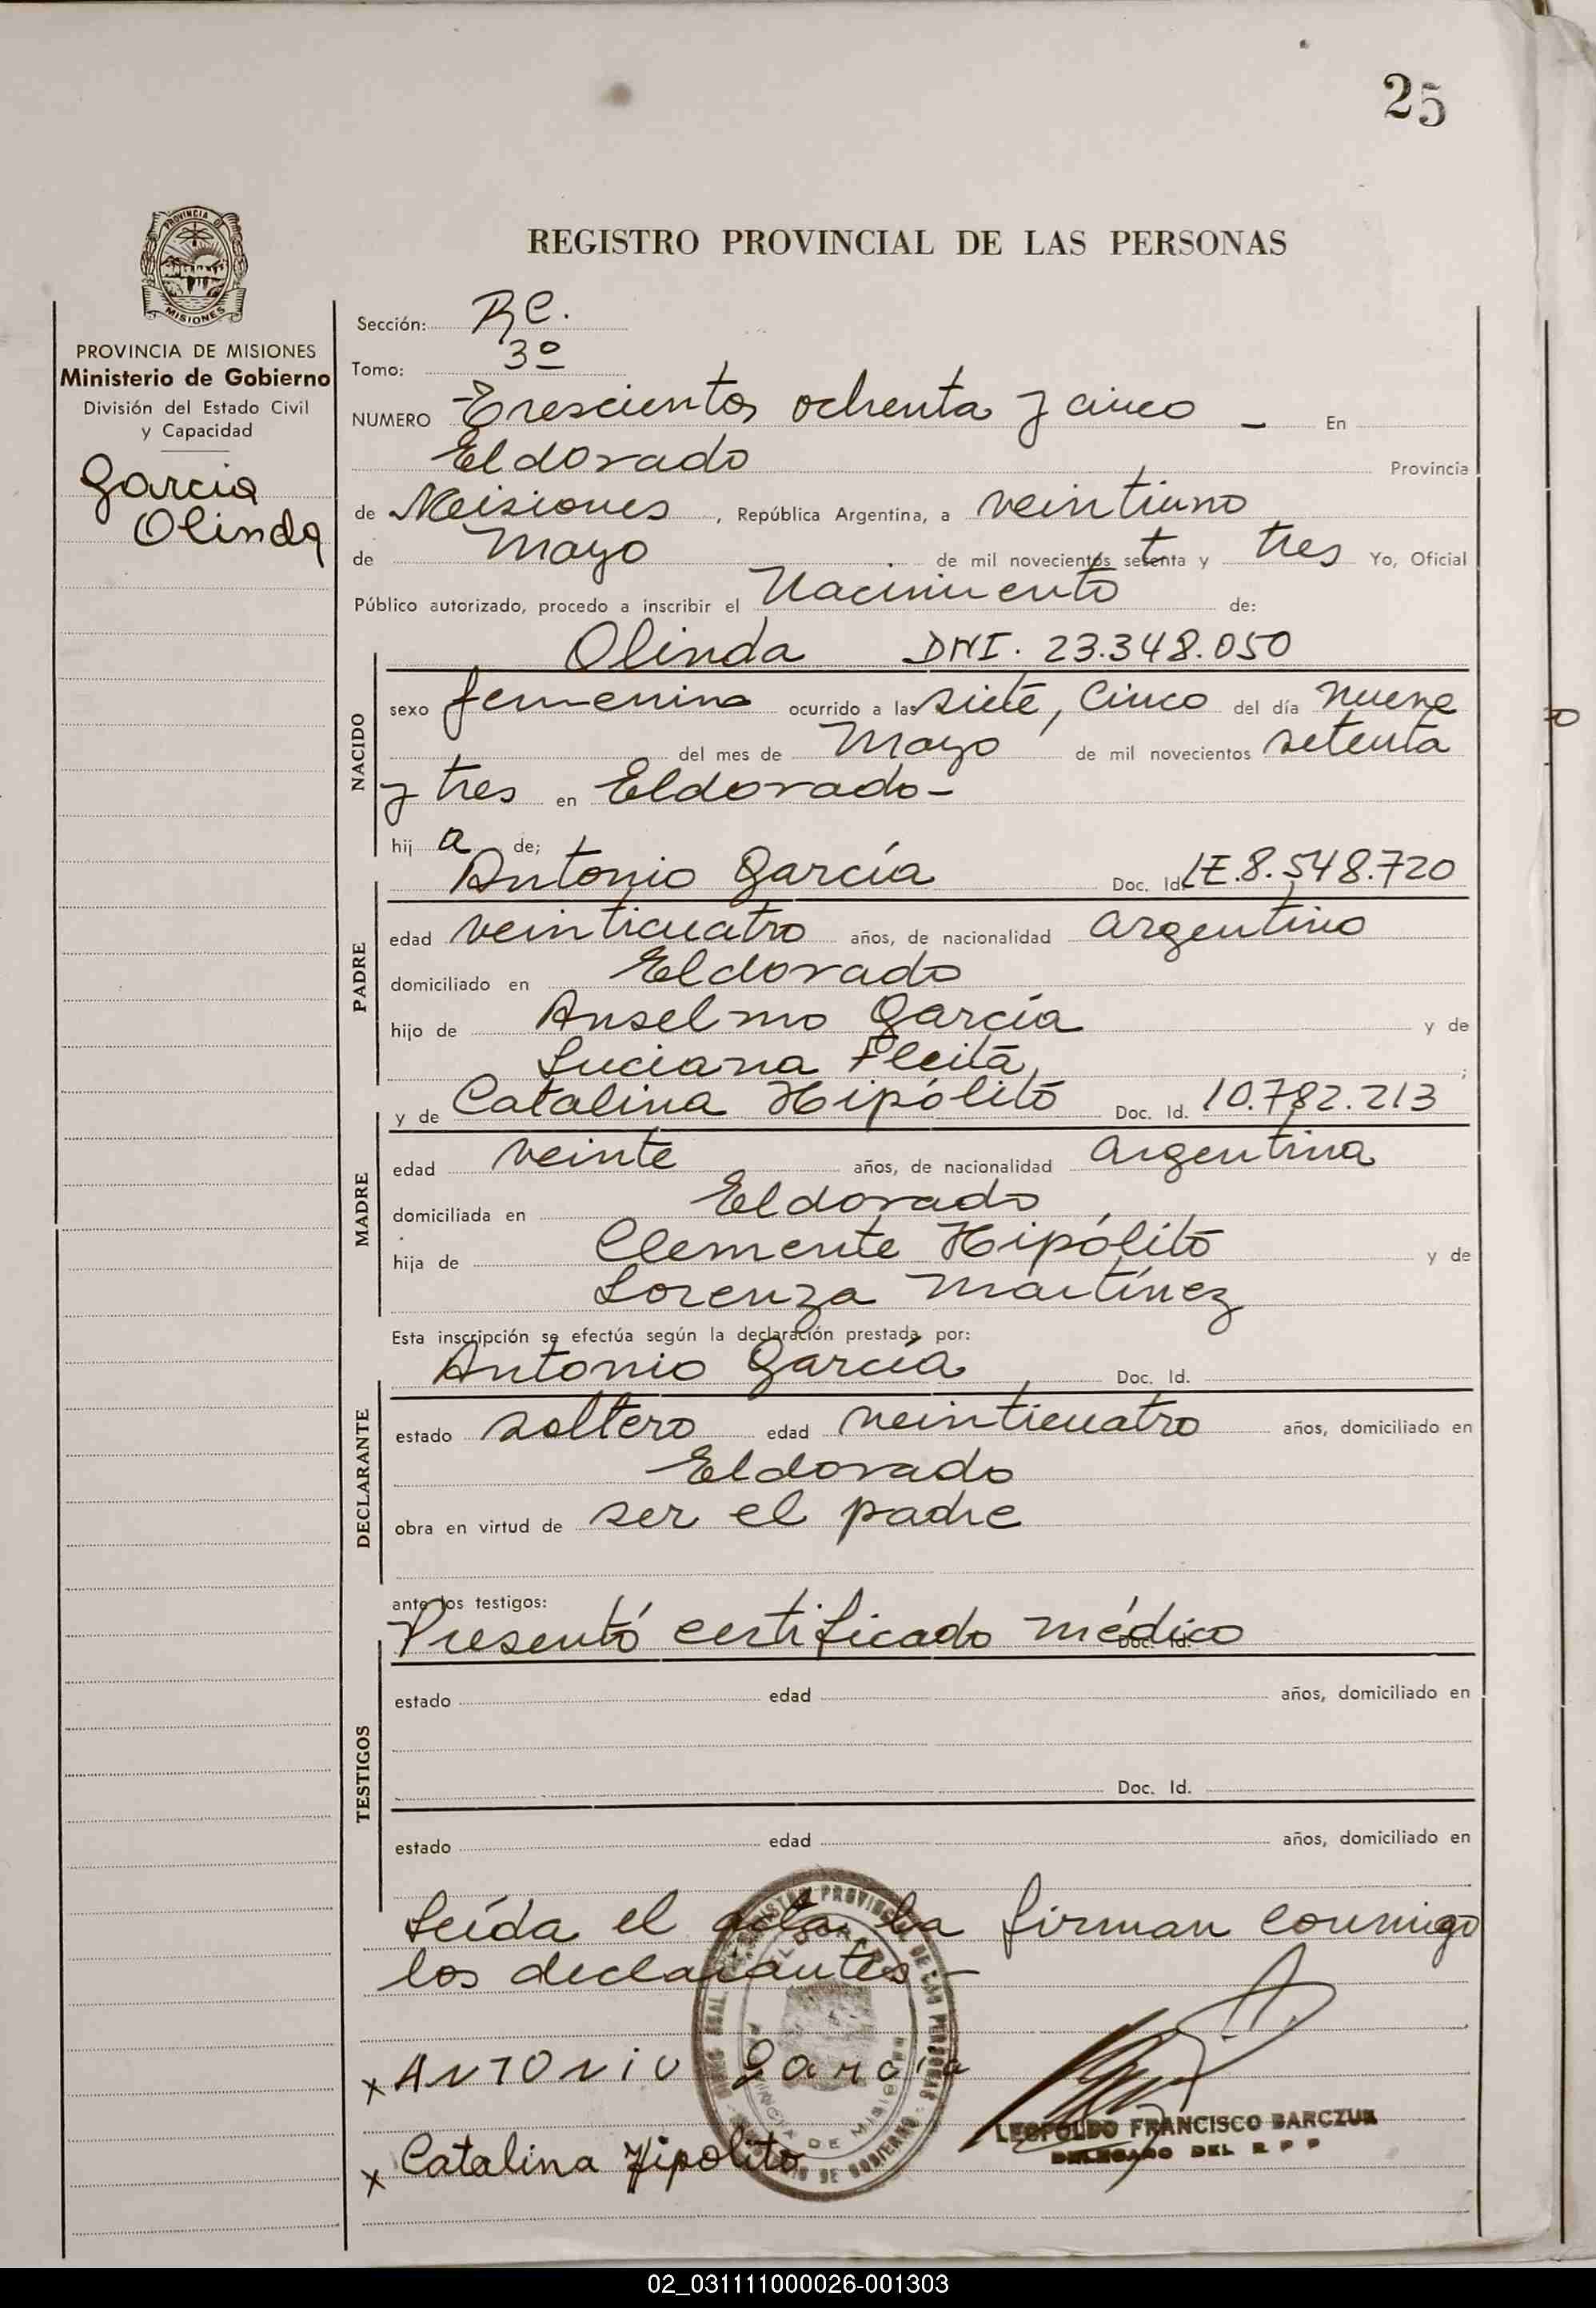 25
PROVINCIA DE
MISIONES
REGISTRO PROVINCIAL DE LAS PERSONAS
PROVINCIA DE MISIONES
Ministerio de Gobierno
División del Estado Civil
y Capacidad
Garcia
Olinda
Sección: RC.
Tomo: 3º
NUMERO Trescientos ochenta y cinco - En
Eldorado Provincia
de Misiones, República Argentina, a veintiuno
de Mayo de mil novecientos setenta y tres Yo, Oficial
Público autorizado, procedo a inscribir el Nacimiento de:
NACIDO
Olinda DNI. 23.348.050
sexo femenino ocurrido a las siete, cinco del día nueve
del mes de Mayo de mil novecientos setenta
y tres en Eldorado-
hij a de;
PADRE
Antonio García Doc. Id. LE.8.548.720
edad veinticuatro años, de nacionalidad argentino
domiciliado en Eldorado
hijo de Anselmo García y de
Luciana Fleita;
MADRE
y de Catalina Hipólito Doc. Id. 10.782.213
edad veinte años, de nacionalidad argentina
domiciliada en Eldorado
hija de Clemente Hipólito y de
Lorenza Martínez
Esta inscripción se efectúa según la declaración prestada por:
DECLARANTE
Antonio García Doc. Id.
estado soltero edad veinticuatro años, domiciliado en
Eldorado
obra en virtud de ser el padre
ante los testigos:
TESTIGOS
Presentó certificado médico Doc. Id.
estado edad años, domiciliado en
Doc. Id.
estado edad años, domiciliado en
Leída el acta la firman conmigo
los declarantes-
x Antonio Garcia
x Catalina Hipolito
LEOPOLDO FRANCISCO BARCZUK
DELEGADO DEL R P P
02_031111000026-001303